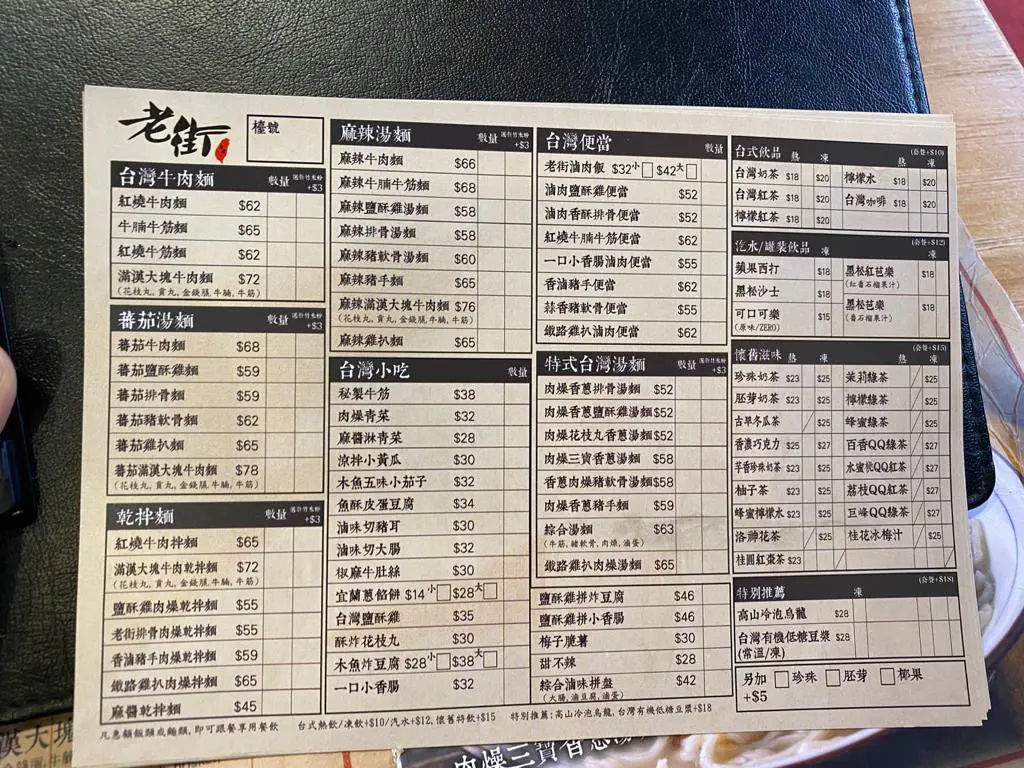 老街
檯號
台灣牛肉麵 數量 選什竹水粉+$3
紅燒牛肉麵 $62
牛腩牛筋麵 $65
紅燒牛筋麵 $62
滿漢大塊牛肉麵 $72
(花枝丸, 貢丸, 金錢腱, 牛腩, 牛筋)
蕃茄湯麵 數量 +$3
蕃茄牛肉麵 $68
蕃茄鹽酥雞麵 $59
蕃茄排骨麵 $59
蕃茄豬軟骨麵 $62
蕃茄雞扒麵 $65
蕃茄滿漢大塊牛肉麵 $78
(花枝丸, 貢丸, 金錢腱, 牛腩, 牛筋)
乾拌麵 數量 +$3
紅燒牛肉拌麵 $65
滿漢大塊牛肉乾拌麵 $72
(花枝丸, 貢丸, 金錢腱, 牛腩, 牛筋)
鹽酥雞肉燥乾拌麵 $55
老街排骨肉燥乾拌麵 $55
香滷豬手肉燥乾拌麵 $59
鐵路雞扒肉燥拌麵 $65
麻醬乾拌麵 $45
麻辣湯麵 數量 +$3
麻辣牛肉麵 $66
麻辣牛腩牛筋麵 $68
麻辣鹽酥雞湯麵 $58
麻辣排骨湯麵 $58
麻辣豬軟骨湯麵 $60
麻辣豬手麵 $65
麻辣滿漢大塊牛肉麵 $76
(花枝丸, 貢丸, 金錢腱, 牛腩, 牛筋)
麻辣雞扒麵 $65
台灣小吃 數量
秘製牛筋 $38
肉燥青菜 $32
麻醬淋青菜 $28
涼拌小黃瓜 $30
木魚五味小茄子 $32
魚酥皮蛋豆腐 $34
滷味切豬耳 $30
滷味切大腸 $32
椒麻牛肚絲 $30
宜蘭蔥餡餅 $14小 $28大
台灣鹽酥雞 $35
酥炸花枝丸 $30
木魚炸豆腐 $28小 $38大
一口小香腸 $32
台灣便當 數量
老街滷肉飯 $32小 $42大
滷肉鹽酥雞便當 $52
滷肉香酥排骨便當 $52
紅燒牛腩牛筋便當 $62
一口小香腸滷肉便當 $55
香滷豬手便當 $62
蒜香豬軟骨便當 $55
鐵路雞扒滷肉便當 $62
特式台灣湯麵 數量 +$3
肉燥香蔥排骨湯麵 $52
肉燥香蔥鹽酥雞湯麵 $52
肉燥花枝丸香蔥湯麵 $52
肉燥三寶香蔥湯麵 $58
香蔥肉燥豬軟骨湯麵 $58
肉燥香蔥豬手麵 $59
綜合湯麵 $63
(牛筋, 豬軟骨, 肉燥, 滷蛋)
鐵路雞扒肉燥湯麵 $65
鹽酥雞拼炸豆腐 $46
鹽酥雞拼小香腸 $46
梅子脆薯 $30
甜不辣 $28
綜合滷味拼盤 $42
(大腸, 滷豆腐, 滷蛋)
台式飲品 熱 凍 熱 凍 (公餐+$10)
台灣奶茶 $18 $20 檸檬水 $18 $20
台灣紅茶 $18 $20 台灣咖啡 $18 $20
檸檬紅茶 $18 $20
汽水/罐裝飲品 凍 (公餐+$12)
蘋果西打 $18 黑松紅芭樂 $18
(紅番石榴果汁)
黑松沙士 $18 黑松芭樂 $18
(番石榴果汁)
可口可樂 $15
(原味/ZERO)
懷舊滋味 熱 凍 熱 凍 (公餐+$15)
珍珠奶茶 $23 $25 茉莉綠茶 $25
胚芽奶茶 $23 $25 檸檬綠茶 $25
古早冬瓜茶 $25 蜂蜜綠茶 $25
香濃巧克力 $25 $27 百香QQ綠茶 $27
芋香珍珠奶茶 $23 $25 水蜜桃QQ紅茶 $27
柚子茶 $23 $25 荔枝QQ紅茶 $27
蜂蜜檸檬水 $23 $25 巨峰QQ綠茶 $27
洛神花茶 $25 桂花冰梅汁 $25
桂圓紅棗茶 $23
特別推薦 凍 (公餐+$18)
高山冷泡烏龍 $28
台灣有機低糖豆漿 $28
(常溫/凍)
另加 珍珠 胚芽 椰果
+$5
凡惠顧飯類或麵類, 即可跟餐享用餐飲 台式熱飲/凍飲+$10/汽水+$12, 懷舊特飲+$15 特別推薦:高山冷泡烏龍, 台灣有機低糖豆漿+$18
漢大塊
肉燥三寶香蔥湯